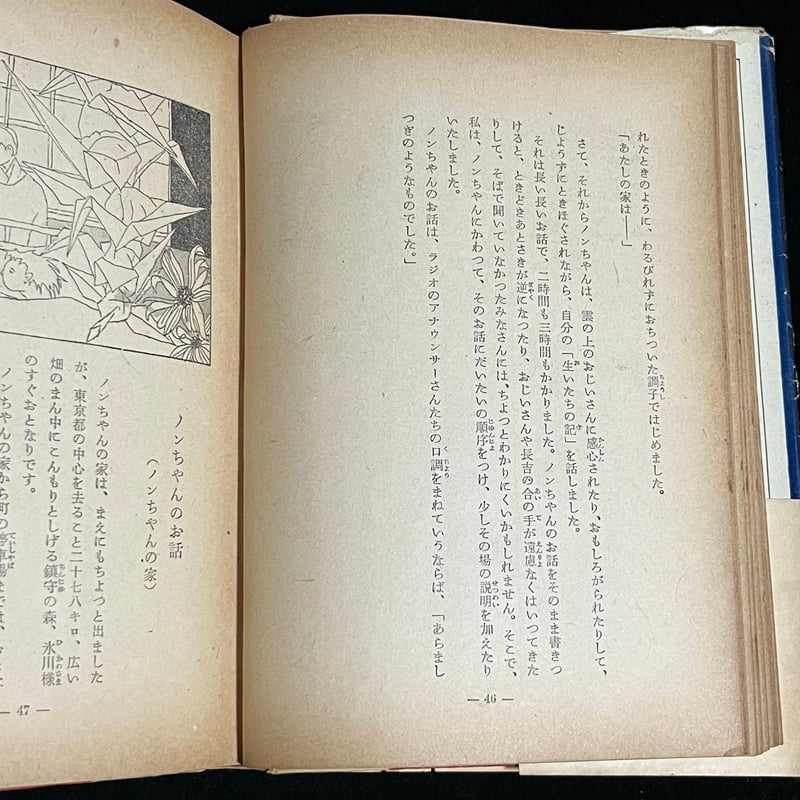 れたときのように、わるびれずにおちついた調子ではじめました。
「あたしの家は――」
さて、それからノンちゃんは、雲の上のおじいさんに感心されたり、おもしろがられたりして、
じようずにときほぐされながら、自分の「生いたちの記」を話しました。
それは長い長いお話で、二時間も三時間もかかりました。ノンちゃんのお話をそのまま書きつ
けると、ときどきあとさきが逆になつたり、おじいさんや長吉の合の手が遠慮なくはいつてきた
りして、そばで聞いていなかつたみなさんには、ちょつとわかりにくいかもしれません。そこで、
私は、ノンちゃんにかわつて、そのお話にだいたいの順序をつけ、少しその場の説明を加えたり
いたしました。
ノンちゃんのお話は、ラジオのアナウンサーさんたちの口調をまねていうならば、「あらまし
つぎのようなものでした。」
— 46 —
ノンちゃんのお話
(ノンちゃんの家)
ノンちゃんの家は、まえにもちょつと出ました
が、東京都の中心を去ること二十七八キロ、広い
畑のまん中にこんもりとしげる鎮守の森、氷川様
のすぐおとなりです。
ノンちゃんの家から町の停車場までは、
— 47 —